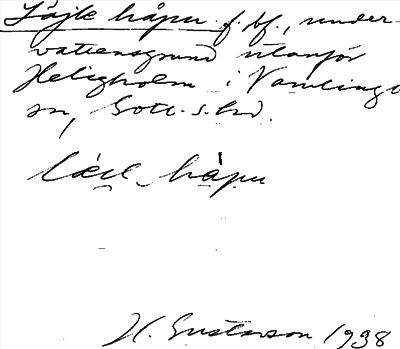 Läjle håpu f. bf., under-
vattensgrund utanför
Heligholm i Vamlingbo
sn, Gotl. s. hd.
håpu
H. Gustavson 1938